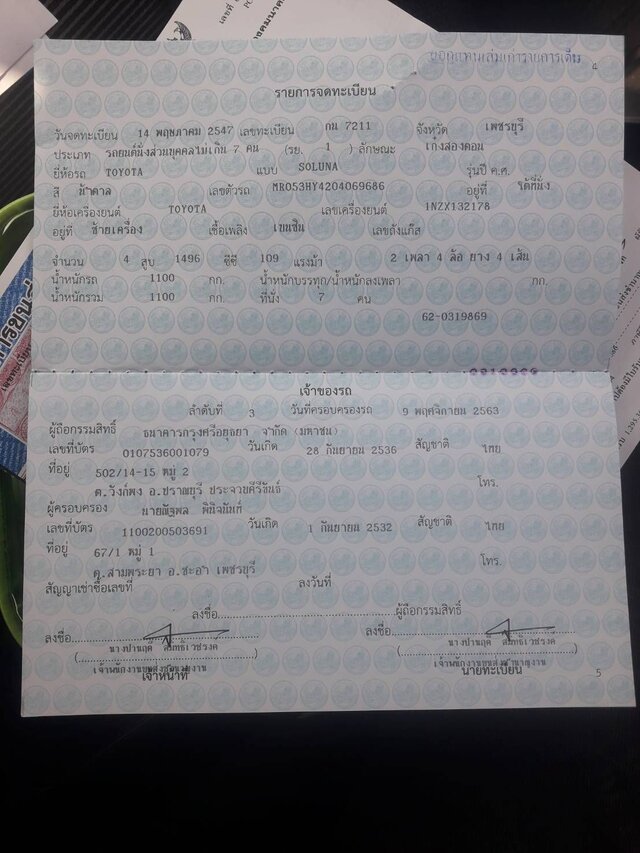 เลขที่
ออกแทนเล่มเก่ารายการเต็ม
4
รายการจดทะเบียน
วันจดทะเบียน 14 พฤษภาคม 2547 เลขทะเบียน กน 7211 จังหวัด เพชรบุรี
ประเภท รถยนต์นั่งส่วนบุคคลไม่เกิน 7 คน (รย. 1 ) ลักษณะ เก๋งสองตอน
ยี่ห้อรถ TOYOTA แบบ SOLUNA รุ่นปี ค.ศ.
สี น้ำตาล เลขตัวรถ MR053HY4204069686 อยู่ที่ ใต้ที่นั่ง
ยี่ห้อเครื่องยนต์ TOYOTA เลขเครื่องยนต์ 1NZX132178
อยู่ที่ ซ้ายเครื่อง เชื้อเพลิง เบนซิน เลขถังแก๊ส
จำนวน 4 สูบ 1496 ซีซี 109 แรงม้า 2 เพลา 4 ล้อ ยาง 4 เส้น
น้ำหนักรถ 1100 กก. น้ำหนักบรรทุก/น้ำหนักลงเพลา กก.
น้ำหนักรวม 1100 กก. ที่นั่ง 7 คน
62-0319869
เจ้าของรถ
ลำดับที่ 3 วันที่ครอบครองรถ 9 พฤศจิกายน 2563
ผู้ถือกรรมสิทธิ์ ธนาคารกรุงศรีอยุธยา จำกัด (มหาชน)
เลขที่บัตร 0107536001079 วันเกิด 28 กันยายน 2536 สัญชาติ ไทย
ที่อยู่ 502/14-15 หมู่ 2 โทร.
ต.วังก์พง อ.ปราณบุรี ประจวบคีรีขันธ์
ผู้ครอบครอง นายณัฐพล พินิจนันท์
เลขที่บัตร 1100200503691 วันเกิด 1 กันยายน 2532 สัญชาติ ไทย
ที่อยู่ 67/1 หมู่ 1 โทร.
ต.สามพระยา อ.ชะอำ เพชรบุรี
สัญญาเช่าซื้อเลขที่ ลงวันที่
ลงชื่อ ผู้ถือกรรมสิทธิ์
ลงชื่อ ลงชื่อ
เจ้าหน้าที่ นายทะเบียน
5